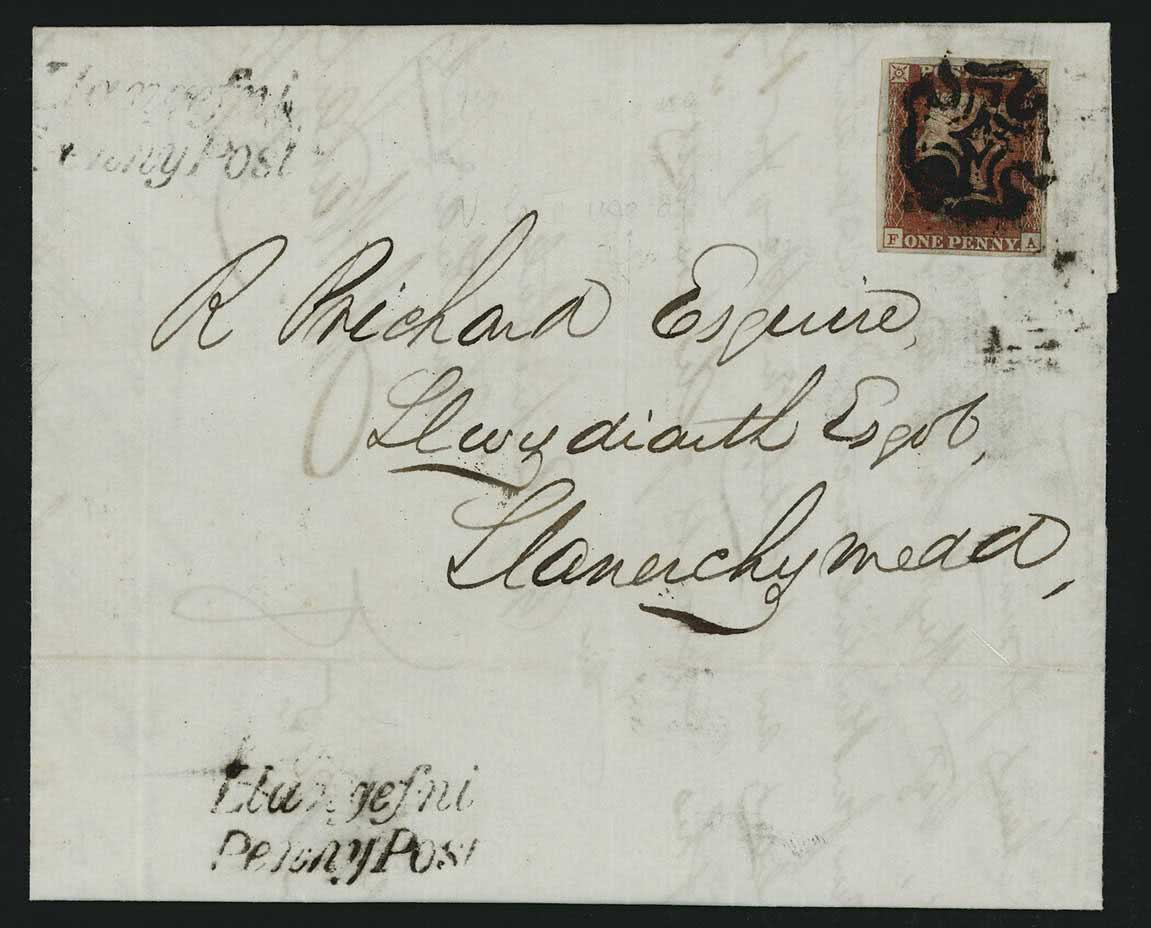 Llangefni
Penny Post
POSTAGE
F ONE PENNY. A
R Prichard Esquire,
Llwydiarth Esgob,
Llanerchymedd,
Llangefni
Penny Post